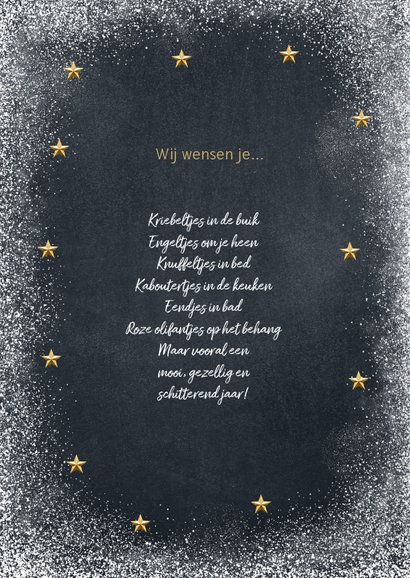 Wij wensen je...
Kriebeltjes in de buik
Engeltjes om je heen
Knuffeltjes in bed
Kaboutertjes in de keuken
Eendjes in bad
Roze olifantjes op het behang
Maar vooral een
mooi, gezellig en
schitterend jaar!